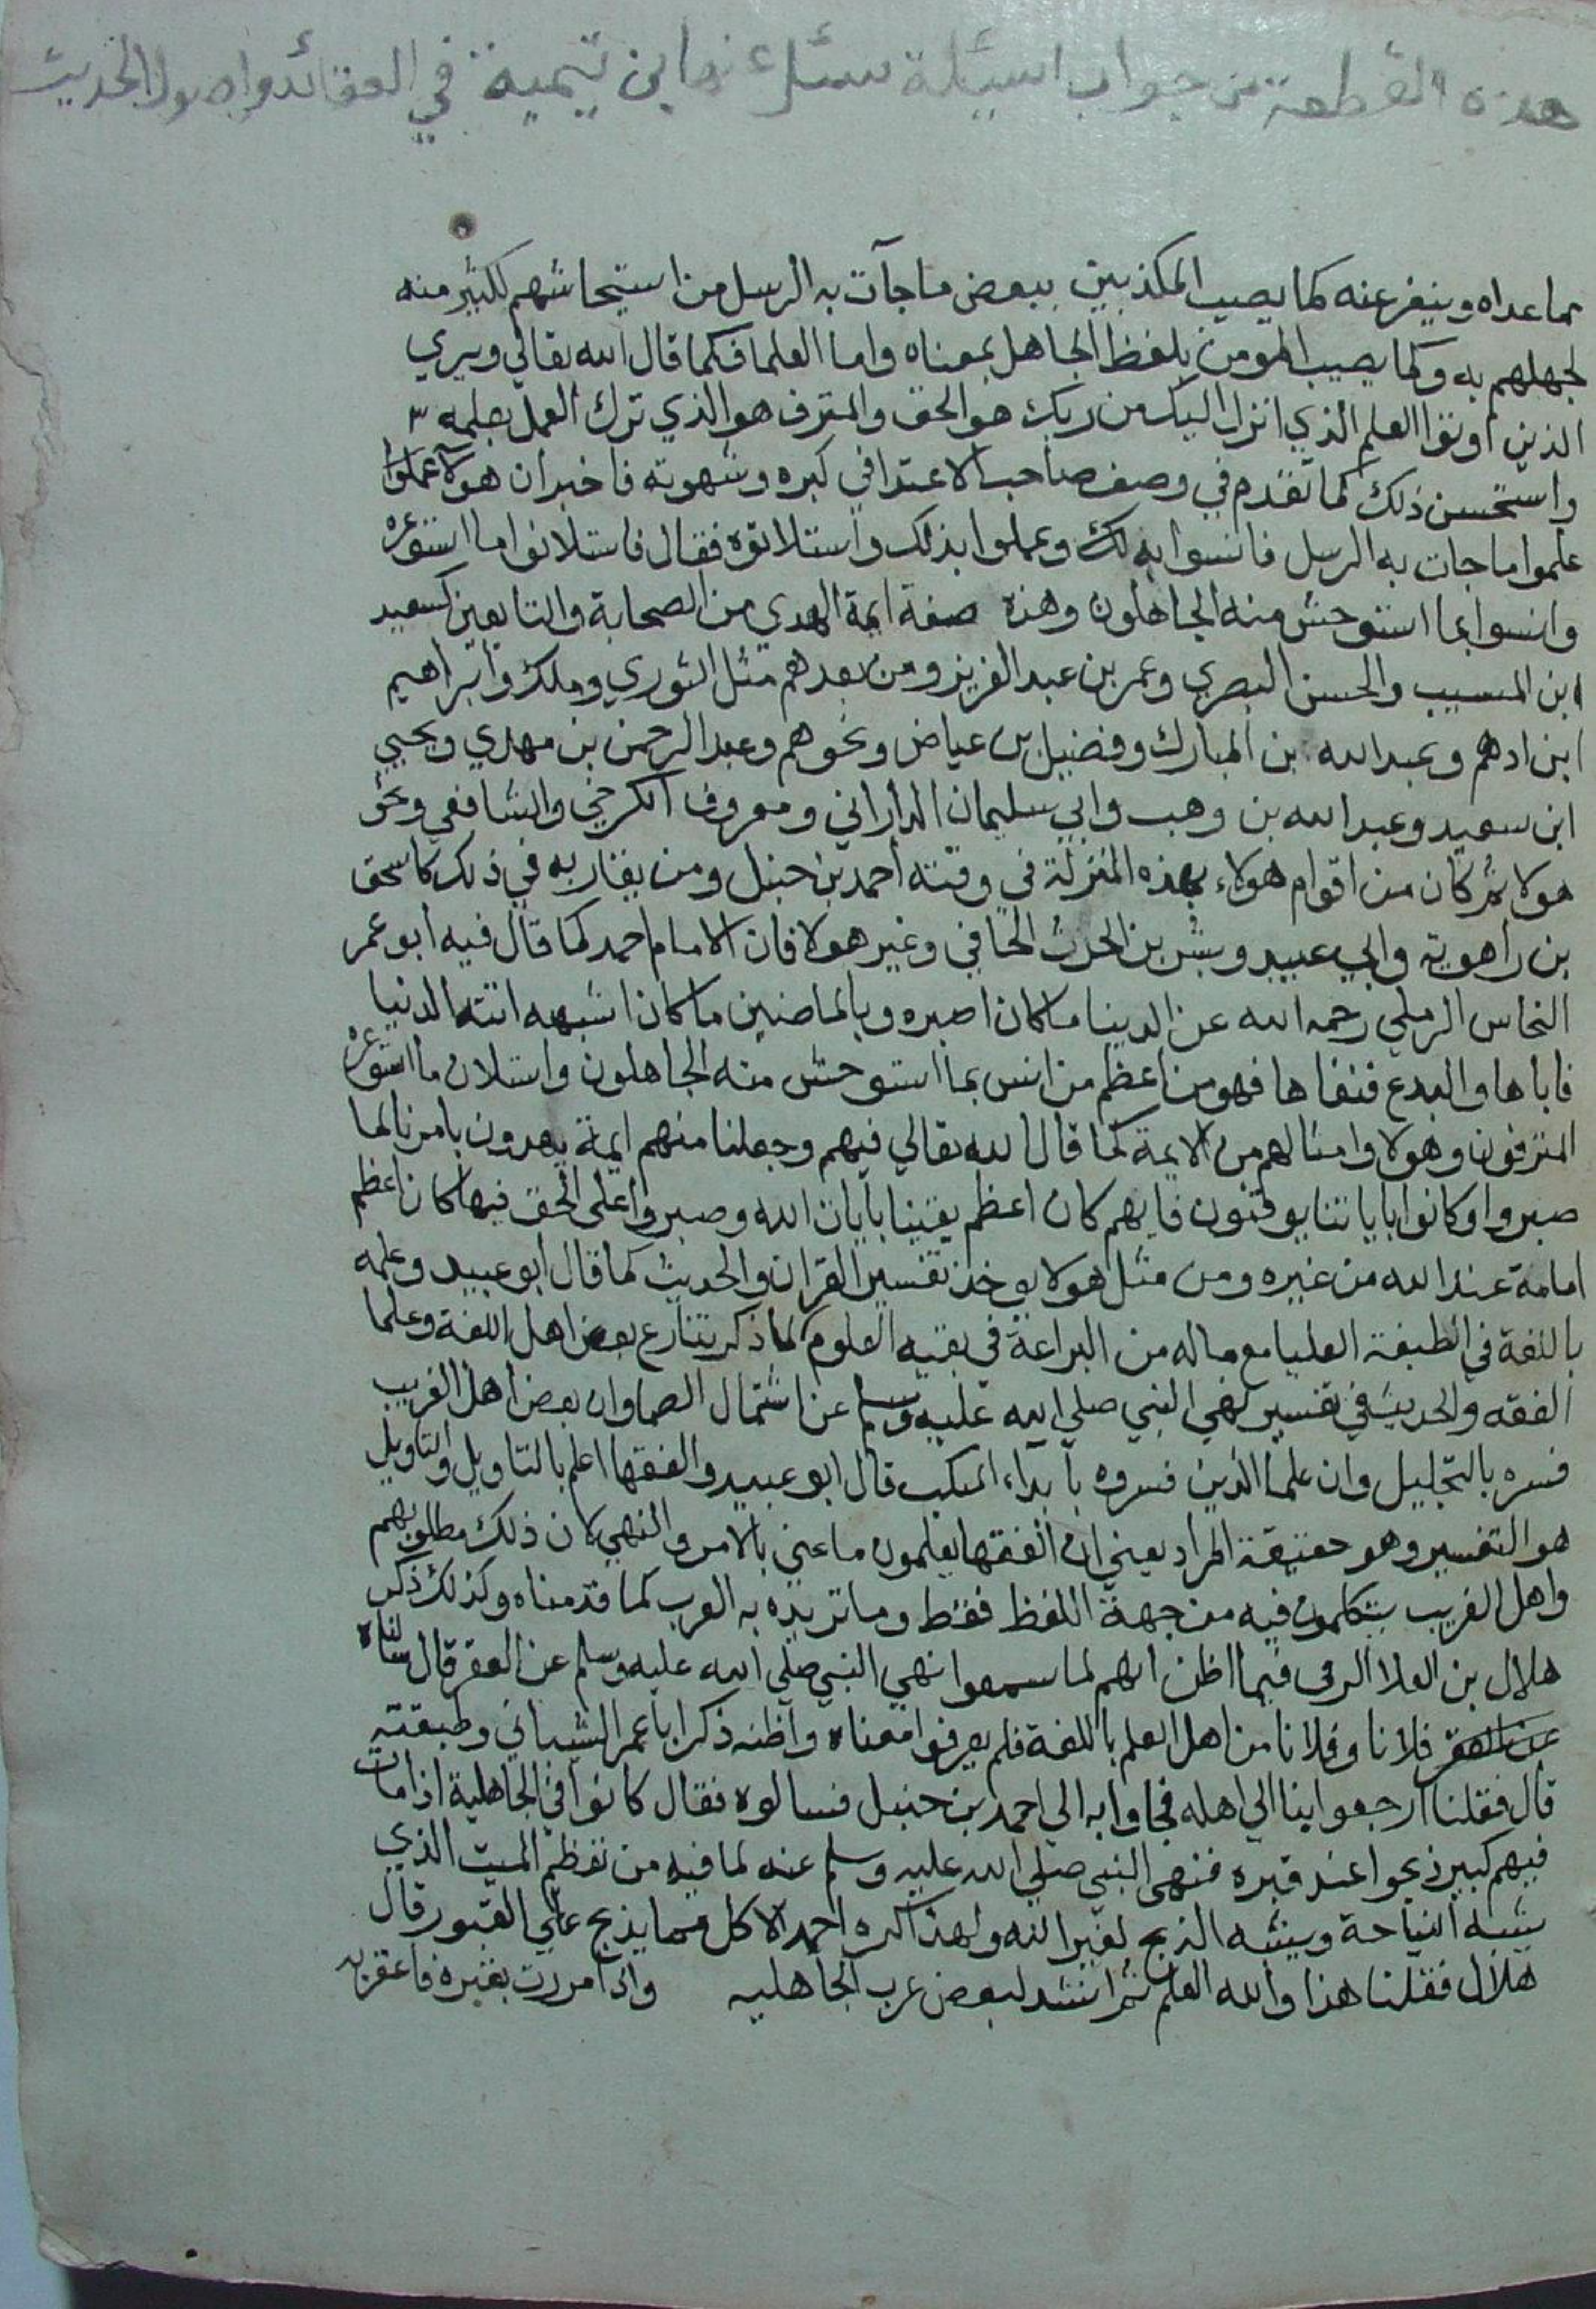 هذه القطعة من جواب اسئلة سئل عنها ابن تيمية في العقائد واصول الحديث
بما عداه وينفر عنه كما يصيب المكذبين ببعض ما جآت به الرسل من استيحاشهم لكثير منه
لجهلهم به وكما يصيب المومن بلفظ الجاهل بمعناه واما العلما فكما قال الله تعالي ويري
الذين اوتوا العلم الذي انزل اليك من ربك هو الحق والمترف هو الذي ترك العمل بعلمه
واستحسن ذلك كما تقدم في وصف صاحب الاعتدا في كبره وشهوته فاخبر ان هولآ عملوا
علموا ما جات به الرسل فانسوا بذلك وعملوا بذلك واستلانوه فقال فاستلانوا ما استوعره
وانسوا بما استوحش منه الجاهلون وهذه صفة ايمة الهدي من الصحابة والتابعين كسعيد
ابن المسيب والحسن البصري وعمر بن عبد العزيز ومن بعدهم مثل الثوري وملك وابراهيم
ابن ادهم وعبد الله بن المبارك وفضيل بن عياض ونحوهم وعبد الرحمن بن مهدي ويحيي
ابن سعيد وعبد الله بن وهب وابي سليمان الداراني ومعروف الكرخي والشافعي ونحو
هولا ثم كان من اقوام هولاء بهذه المنزلة في وقته احمد بن حنبل ومن يقاربه في ذلك كاسحق
بن راهوية وابي عبيد وبشر بن الحرث الحافي وغير هولا فان الامام احمد كما قال فيه ابو عمر
النحاس الرملي رحمه الله عن الدينا ما كان اصبره وبالماضين ما كان اشبهه اتته الدنيا
فاباها والبدع فنفاها فهو من اعظم من انس بما استوحش منه الجاهلون واستلان ما استوعره
المترفون وهولا وامثالهم من الايمة كما قال الله تعالي فيهم وجعلنا منهم ايمة يهدون بامرنا لما
صبروا وكانوا باياتنا يوقنون فايهم كان اعظم يقينا بآيات الله وصبروا علي الحق فيها كان اعظم
امامة عند الله من غيره ومن مثل هولا يوخذ تفسير القران والحديث كما قال ابو عبيد وعلمه
باللغة في الطبقة العليا مع ماله من البراعة في بقيه العلوم لما ذكر تنازع بعض اهل اللغة وعلما
الفقه والحديث في تفسير نهي النبي صلي الله عليه وسلم عن اشتمال الصما وان بعض اهل الغريب
فسره بالتجليل وان علما الدين فسروه بابداء المنكب قال ابو عبيد والفقها اعلم بالتاويل والتاويل
هو التفسير وهو حقيقة المراد يعني ان الفقها يعلمون ما عني بالامر والنهي لان ذلك مطلوبهم
واهل الغريب يتكلمون فيه من جهة اللفظ فقط وما تريده به العرب كما قدمناه وكذلك ذكر
هلال بن العلا الرقي فيما اظن انهم لما سمعوا نهي النبي صلي الله عليه وسلم عن العقر قال سالناه
عن العقر فلانا وفلانا من اهل العلم باللغة فلم يعرفوا معناه واظنه ذكر ابا عمر الشيباني وطبقته
قال فقلنا ارجعوا بنا الي اهله فجاوا به الي احمد ابن حنبل فسالوه فقال كانوا في الجاهلية اذا مات
فيهم كبير ذبحوا عند قبره فنهي النبي صلي الله عليه وسلم عنه لما فيه من تعظيم الميت الذي
يشبه النياحة ويشبه الذبح لغير الله ولهذا كره احمد الاكل مما يذبح علي القبور قال
هلال فقلنا هذا والله العلم ثم انشد لبعض عرب الجاهليه واذا مررت بقبره فاعقر به